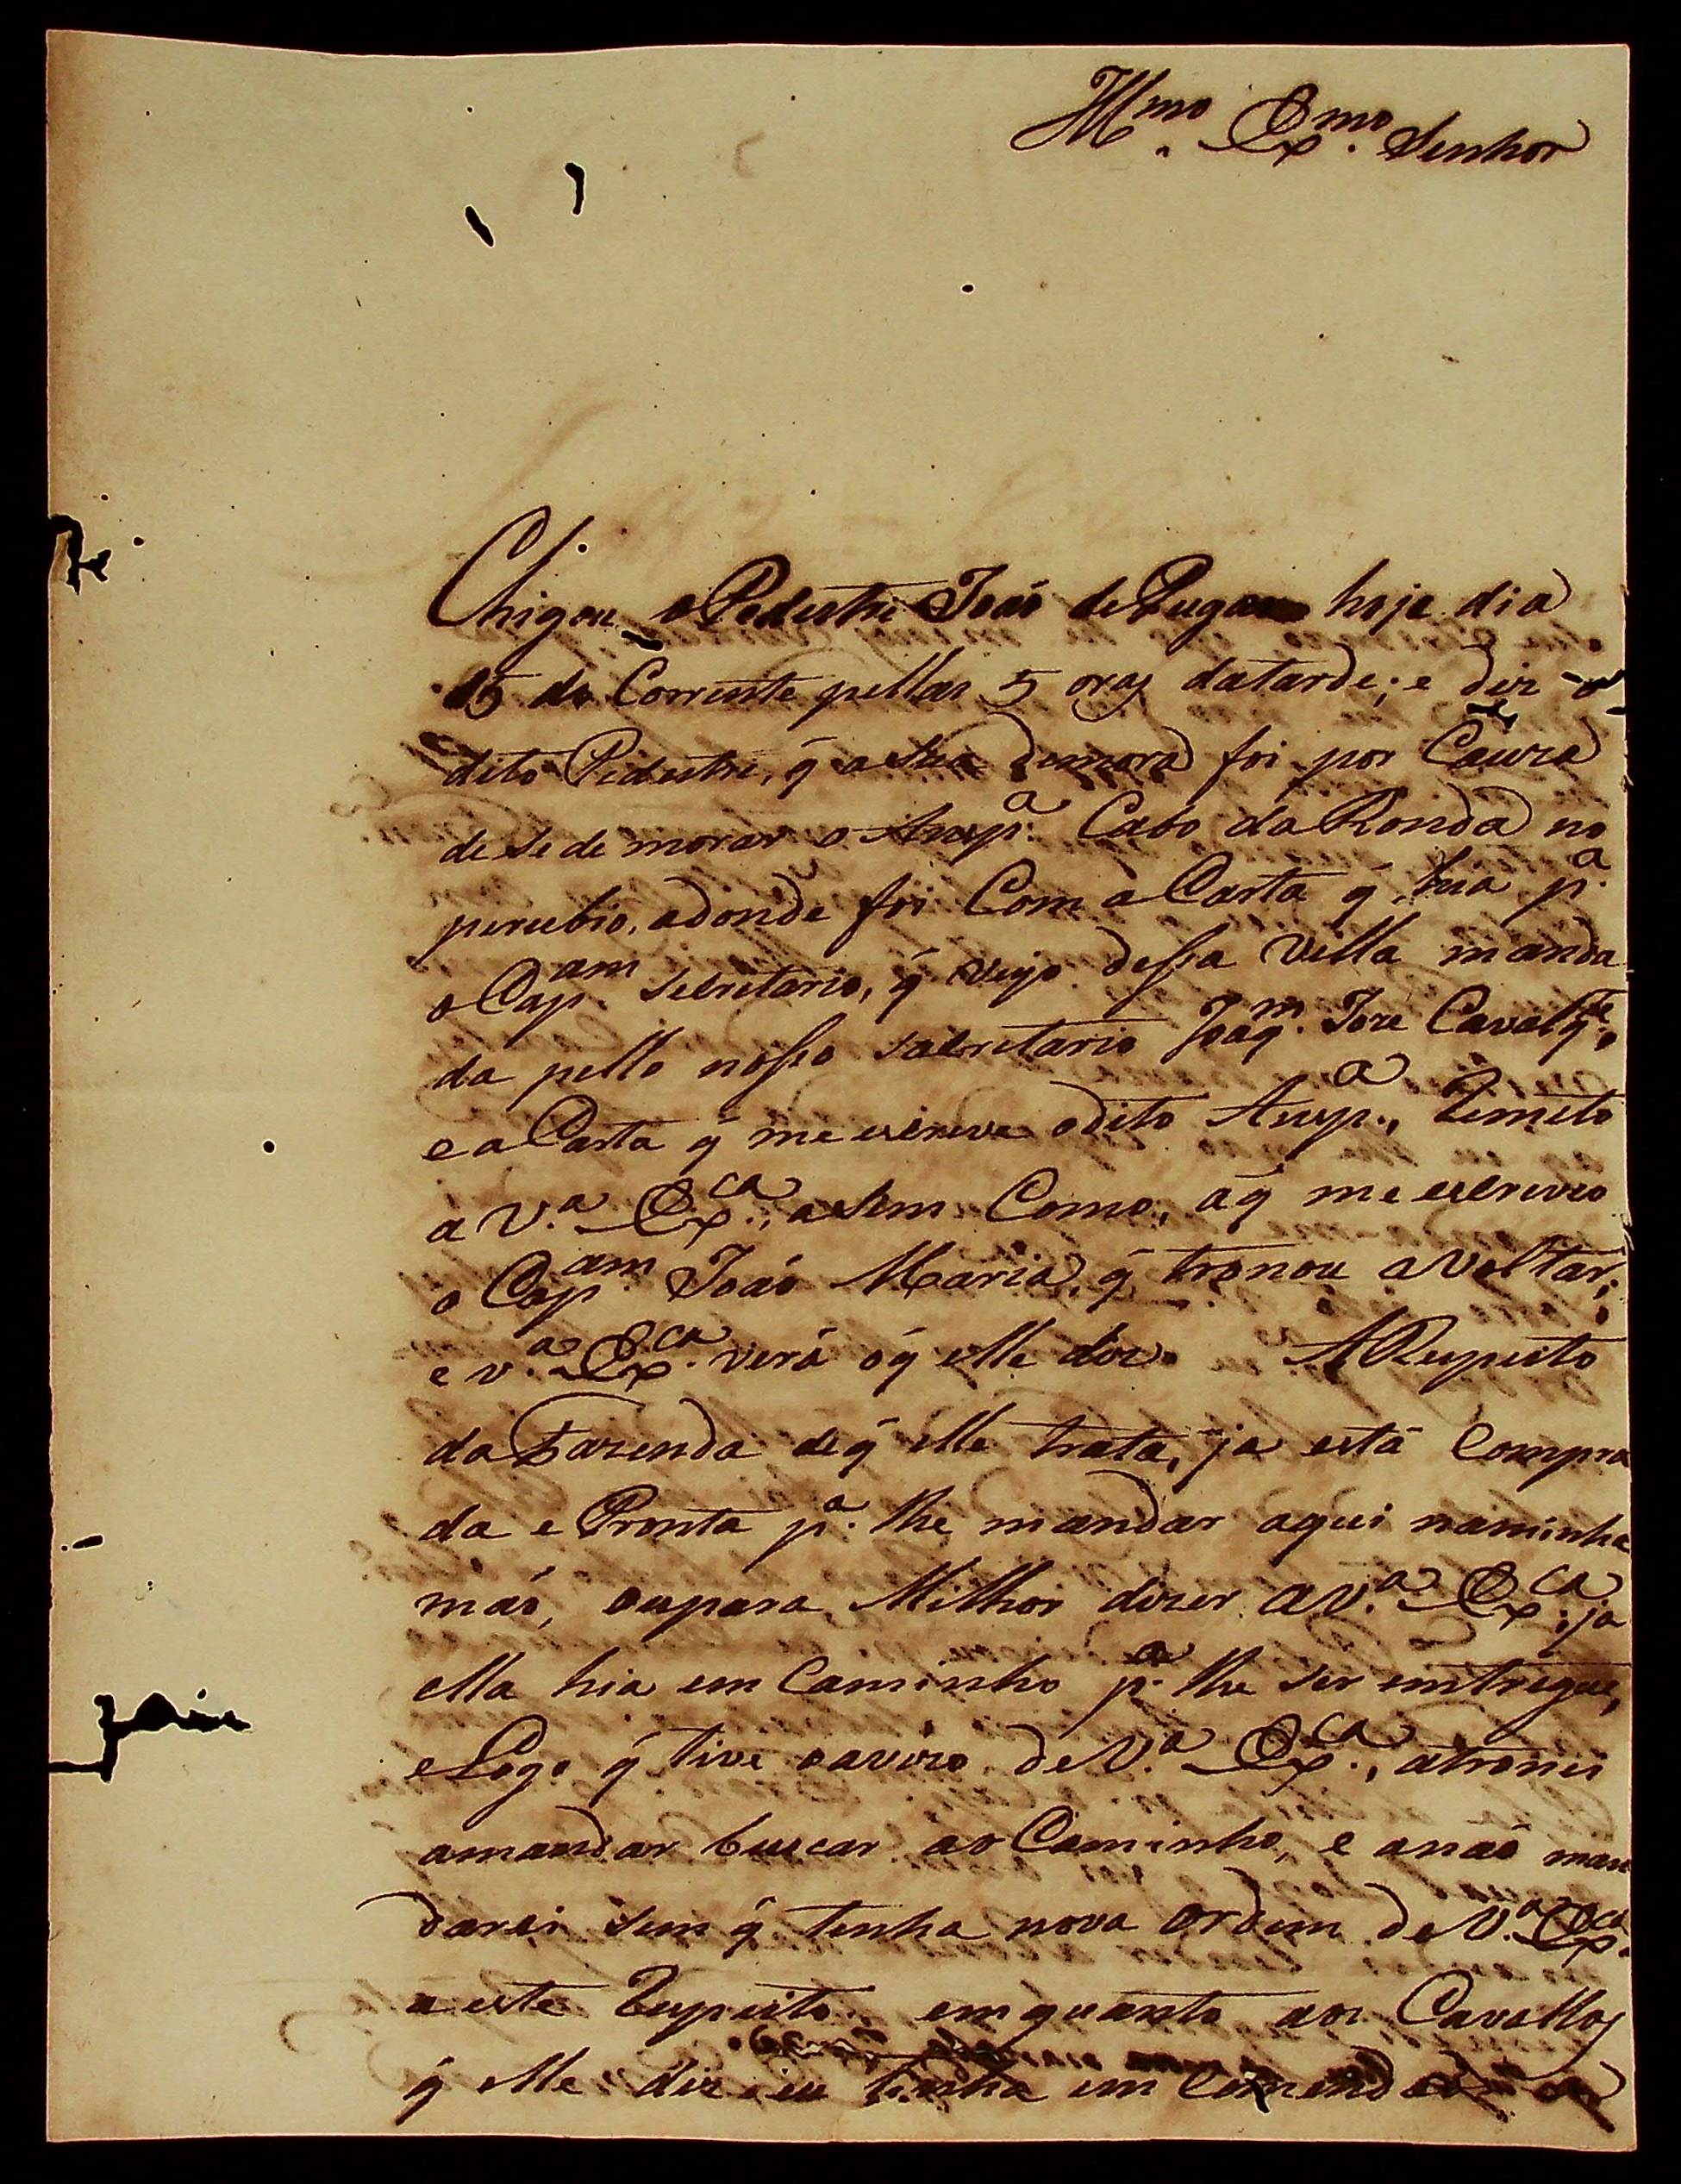 Illmo. Exmo. Senhor
Chigou o Pedestre João de hoje dia
15 do Corrente pellas 5 oras datarde; e diz o
dito Pedestre, q̃ a sua demora foi por Cauza
de se de morar o Ansp.a Cabo da Ronda no
adonde foi Com a Carta q̃ hia p.a
o Cap.am Secretario, q̃ veyo dessa Villa manda
da pello nosso Secretario Joaq.m Joze Cavalg.te
e a Carta q̃ me escreve odito Ansp.a, Remeto
a V.a Ex.ca, asim Como, áq̃ me escreveo
o Cap.am João Maria, q̃ tronou avoltar;
e v.a Ex.ca verá óq̃ elle diz. ARespeito
da Fazenda deq̃ elle trata, ja está Compra
da e Pronta p.a lhe mandar aqui naminha
máo, oupara Milhor dizer aV.a Ex.ca; ja
ella hia em Caminho p.a lhe ser emtregue,
eLogo q̃ tive oavizo deV.a Ex.ca, atronei
amandar buscar ao Caminho, e anaõ man
darei sem q̃ tenha nova Ordem deV.a Ex.ca
a este Respeito. emquanto aos Cavallos
q̃ elle diz eu tinha em